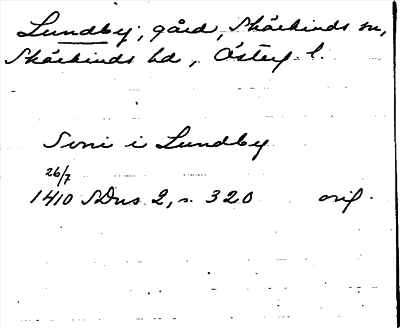 Lundby, gård, Skärkinds sn,
Skärkinds hd, Österg l.
Soni i Lundby
26/7
1410 SDns 2, s. 320 orig.